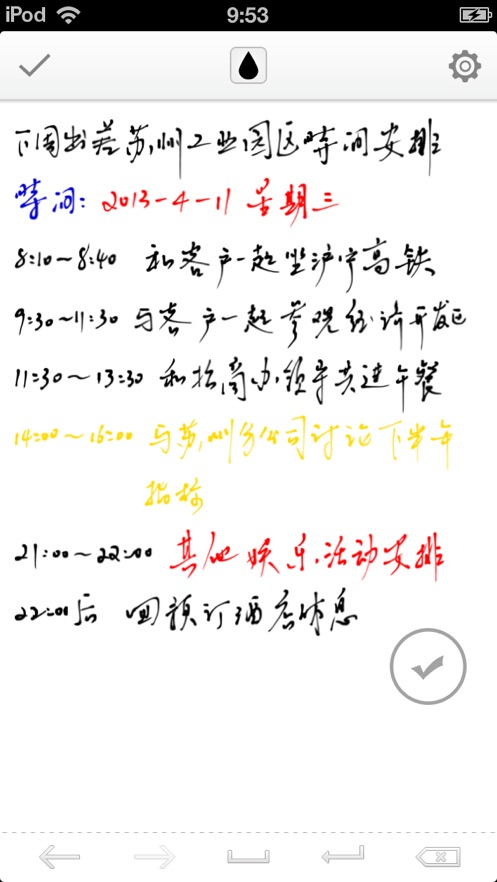 iPod 9:53
下周出差苏州工业园区时间安排
时间: 2013-4-11 星期三
8:10~8:40 和客户一起坐沪宁高铁
9:30~11:30 与客户一起参观经济开发区
11:30~13:30 和招商办领导共进午餐
14:00~16:00 与苏州分公司讨论下半年
指标
21:00~22:00 其他娱乐活动安排
22:00后 回预订酒店休息